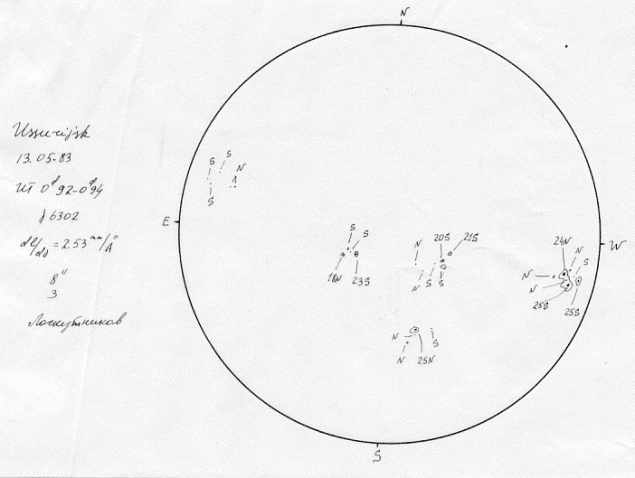 N
Ussurijsk
13.05.83
UT 0ᵈ92-0ᵈ94
λ6302
dl/dλ = 2.53 mm/Å
8"
3
Лоскутников
E
W
S
S S N
S
S
S
18N 23S
20S 21S
N
N S S
24N
N
S
N
N
25S
25S
N
N
25N
S